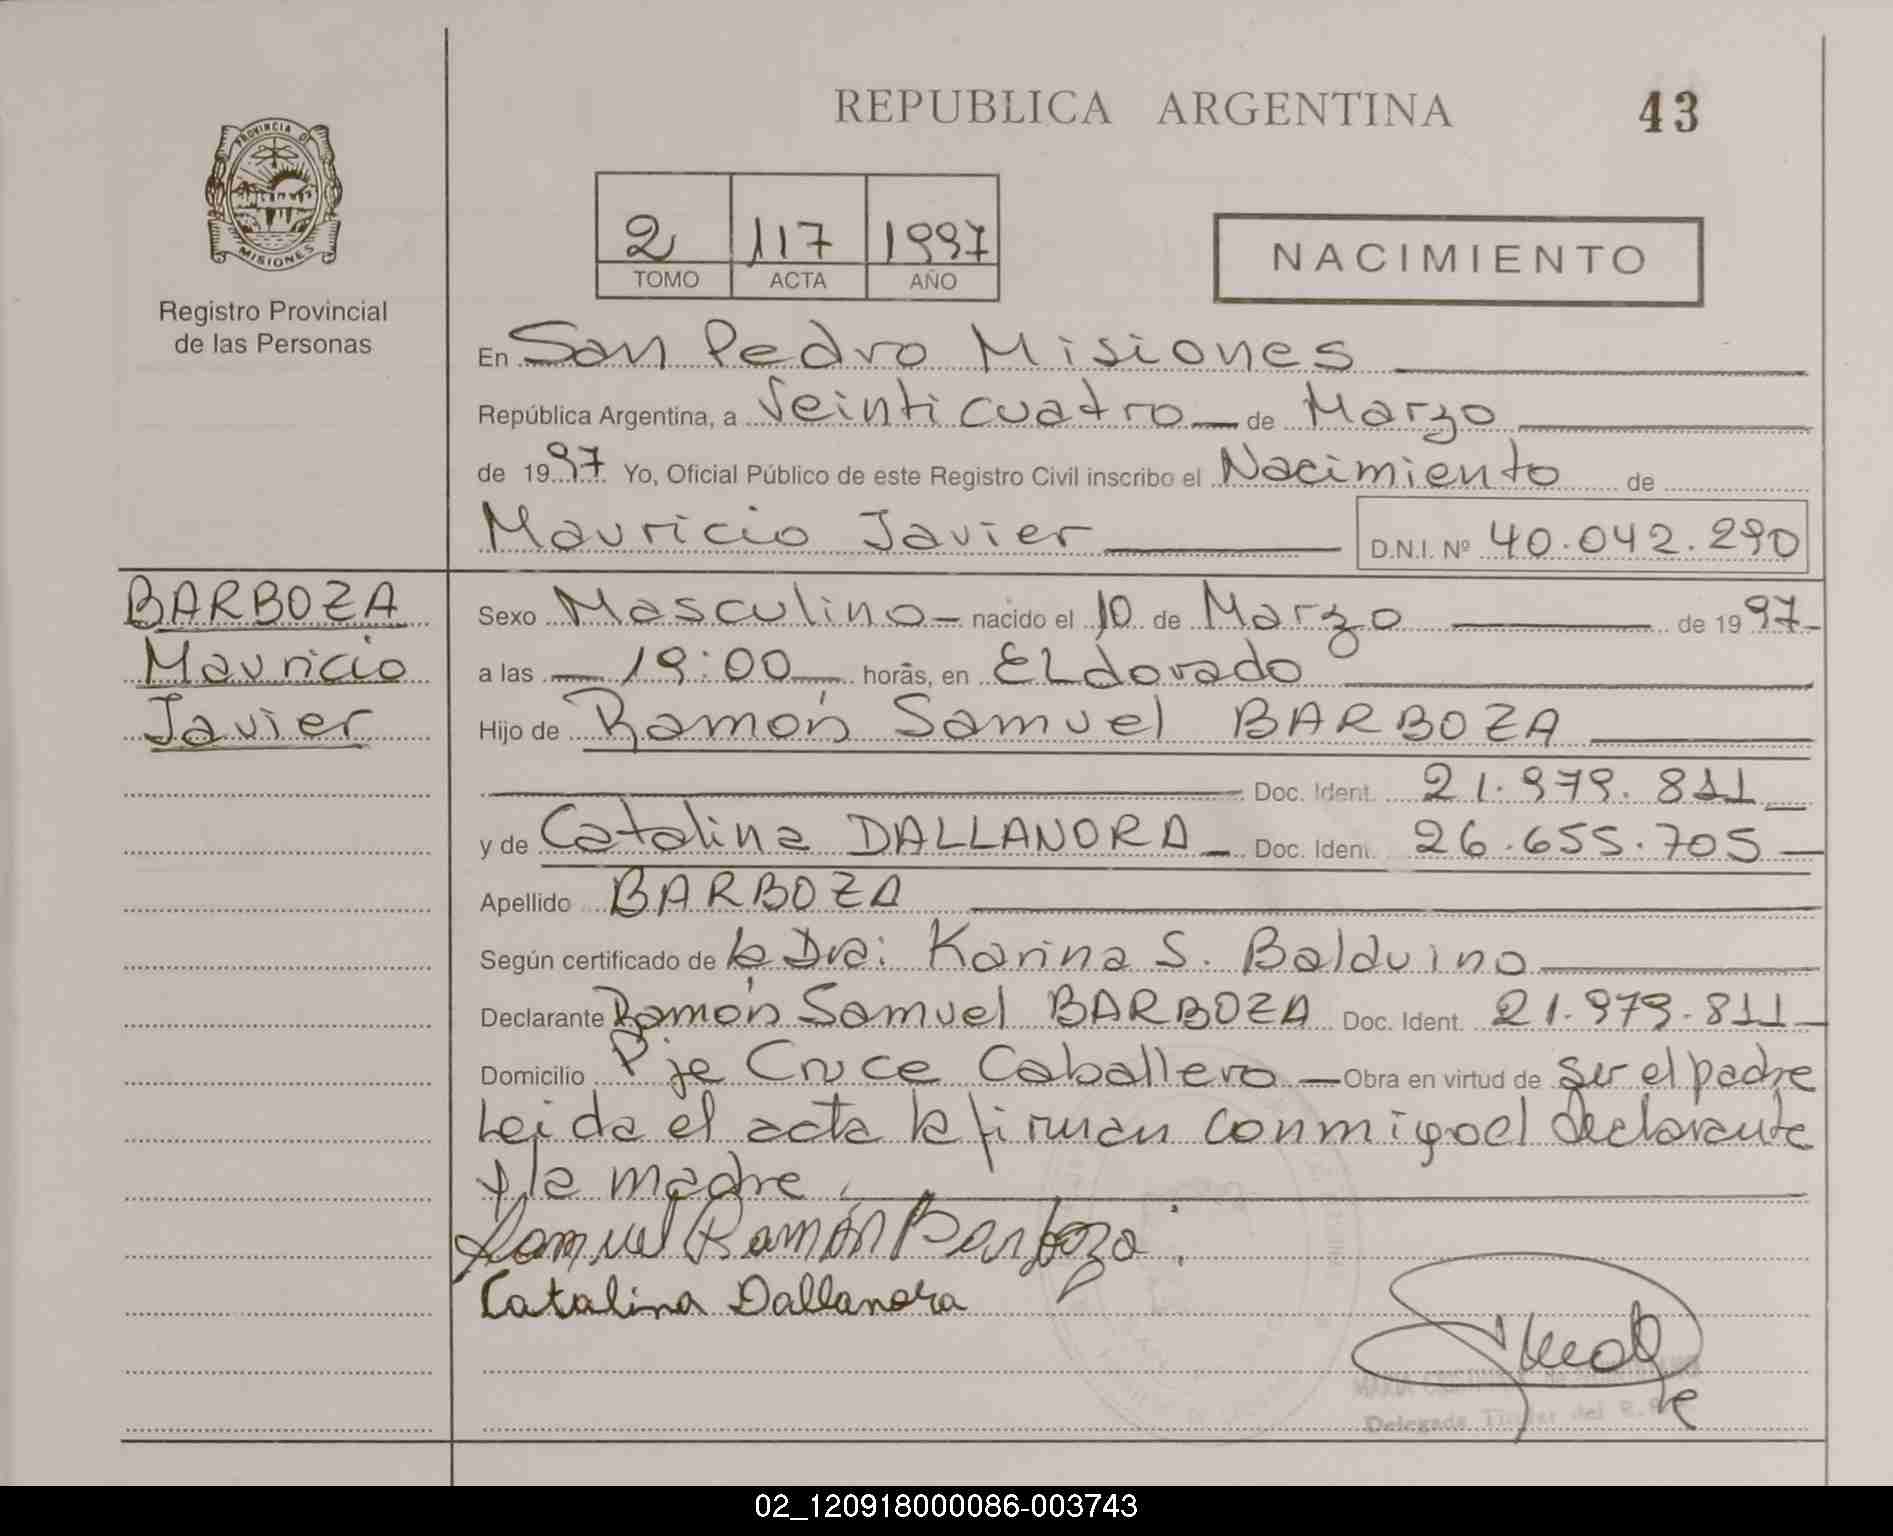 REPUBLICA ARGENTINA
43
PROVINCIA DE
MISIONES
Registro Provincial
de las Personas
2 117 1997
TOMO ACTA AÑO
NACIMIENTO
En San Pedro Misiones
República Argentina, a Veinticuatro de Marzo
de 1997 Yo, Oficial Público de este Registro Civil inscribo el Nacimiento de
Mauricio Javier D.N.I. Nº 40.042.290
BARBOZA
Mauricio
Javier
Sexo Masculino nacido el 10 de Marzo de 1997
a las 19:00 horas, en ELdorado
Hijo de Ramón Samuel BARBOZA
Doc. Ident. 21.979.811
y de Catalina DALLANORA Doc. Ident. 26.655.705
Apellido BARBOZA
Según certificado de la Dra: Karina S. Balduino
Declarante Ramón Samuel BARBOZA Doc. Ident. 21.979.811
Domicilio Pje Cruce Caballero Obra en virtud de ser el padre
Leida el acta la firman conmigo el declarante
y la madre
Samuel Ramón Barboza
Catalina Dallanora
MARIA CRISTINA
Delegada Titular del R.
02_120918000086-003743